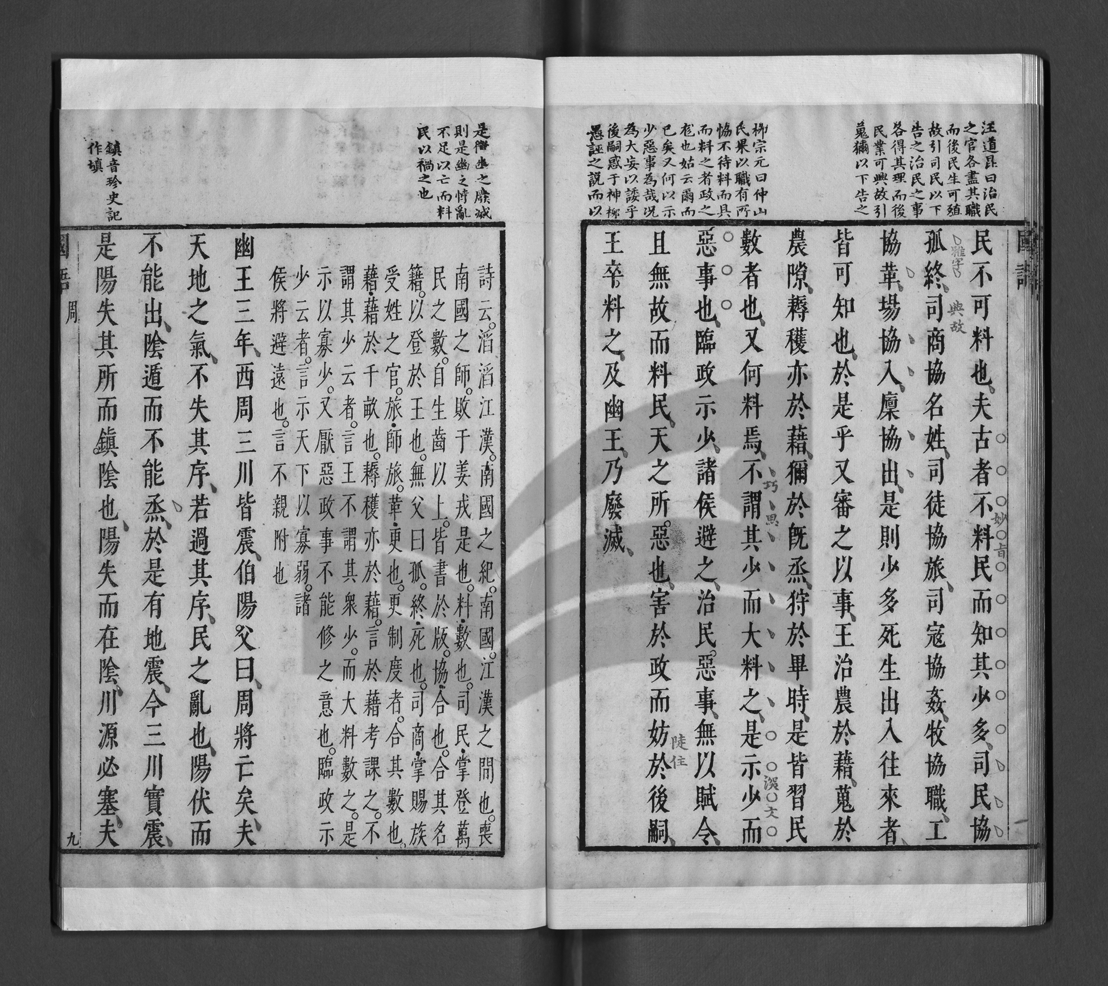 汪道昆曰治民
之官各盡其職
而後民生可殖
故引司民以下
告之治民之事
各得其理而後
民業可興故引
蒐獮以下告之
柳宗元曰仲山
氏果以職有所
恊不待料而具
而料之者政之
尨也姑云爾而
已矣又何以示
少惡事為哉況
為大妄以諉乎
後嗣惑于神怪
愚誣之説而以
民不可料也夫古者不料民而知其少多司民協
孤終司商協名姓司徒協旅司寇協姦牧協職工
協革場協入廩協出是則少多死生出入往來者
皆可知也於是乎又審之以事王治農於藉蒐於
農隙耨穫亦於藉獮於旣烝狩於畢時是皆習民
數者也又何料焉不謂其少而大料之是示少而
惡事也臨政示少諸侯避之治民惡事無以賦令
且無故而料民天之所惡也害於政而妨於後嗣
王卒料之及幽王乃廢滅
雅字
典故
妙旨
巧思
深文
陡住
國語
是徵幽之廢滅
則是幽之悖亂
不足以亡而料
民以禍之也
鎮音珍史記
作填
詩云滔滔江漢南國之紀南國江漢之間也喪
南國之師敗于姜戎是也料數也司民掌登萬
民之數自生齒以上皆書於版協合也合其名
籍以登於王也無父曰孤終死也司商掌賜族
受姓之官旅師旅革更也更制度者合其數也
藉藉於千畝也耨穫亦於藉言於藉考課之不
謂其少云者言王不謂其衆少而大料數之是
示以寡少又厭惡政事不能修之意也臨政示
少云者言示天下以寡弱諸
侯將避遠也言不親附也
幽王三年西周三川皆震伯陽父曰周將亡矣夫
天地之氣不失其序若過其序民之亂也陽伏而
不能出陰遁而不能烝於是有地震今三川實震
是陽失其所而鎮陰也陽失而在陰川源必塞夫
國語 周
九